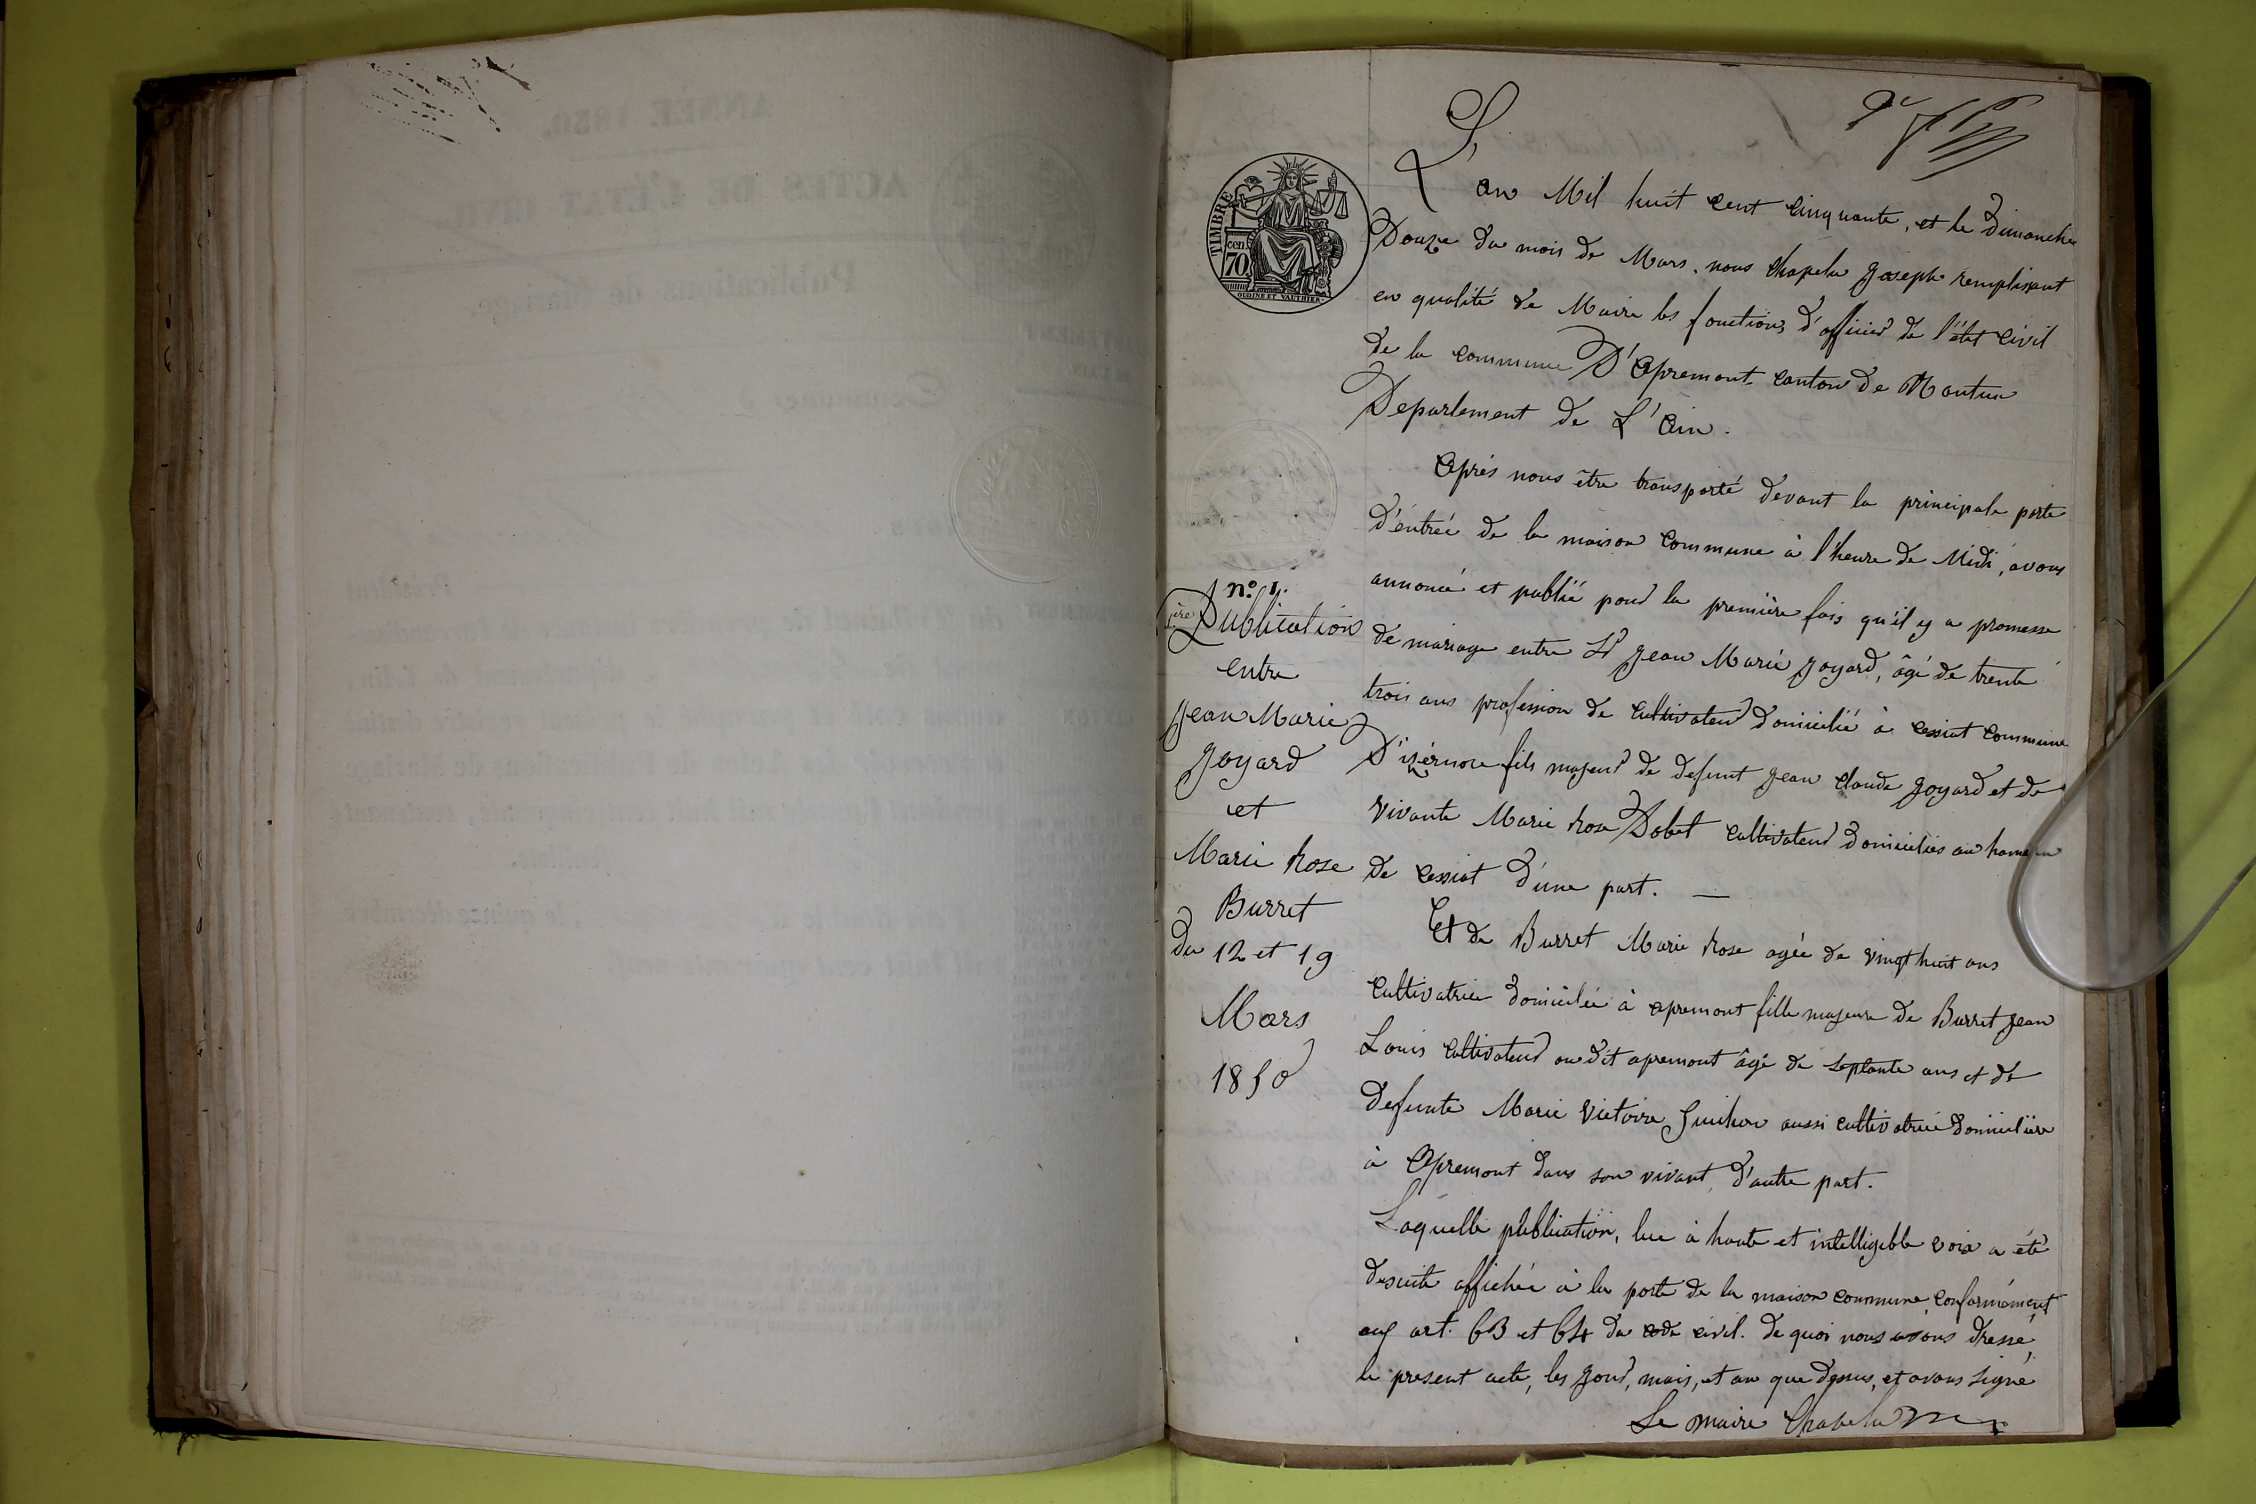 TIMBRE
cen
70
OUDINE ET VAUTHIER
L'
an Mil huit cent cinquante, et le Dimanche
Douze du mois de Mars. nous Chapelu Joseph remplissant
en qualité de Maire les fonctions d'officier de l'état civil
de la commune D'Apremont canton de Nantua
Departement de L'Ain.
Après nous être transporté devant la principale porte
d'entrée de la maison commune à l'heure de Midi, avons
annoncé et publié pour la première fois qu'il y a promesse
de mariage entre Sr Jean Marie Joyard, âgé de trente
trois ans profession de cultivateur domicilié à cessiat commune
D'izernore fils majeur de defunt Jean Claude Joyard et de
vivante Marie Rose Dobel cultivateur domiciliés au hameau
de cessiat d'une part. —
Et de Burret Marie Rose agée de vingt huit ans
cultivatrice domiciliée à apremont fille majeure de Burret Jean
Louis cultivateur audit apremont âgé de septante ans et de
defunte Marie Victoire aussi cultivatrice domicilière
à Apremont dans son vivant, d'autre part.
Laquelle publication, lue à haute et intelligible voix a été
desuite affichée à la porte de la maison commune, conformément
aux art. 63 et 64 du code civil. de quoi nous avons dressé,
le present acte, les jour, mois, et an que dessus, et avons signé
Le maire Chapelu
n.° 1.
1ère Publication
entre
Jean Marie
Joyard
et
Marie Rose
Burret
du 12 et 19
Mars
1850